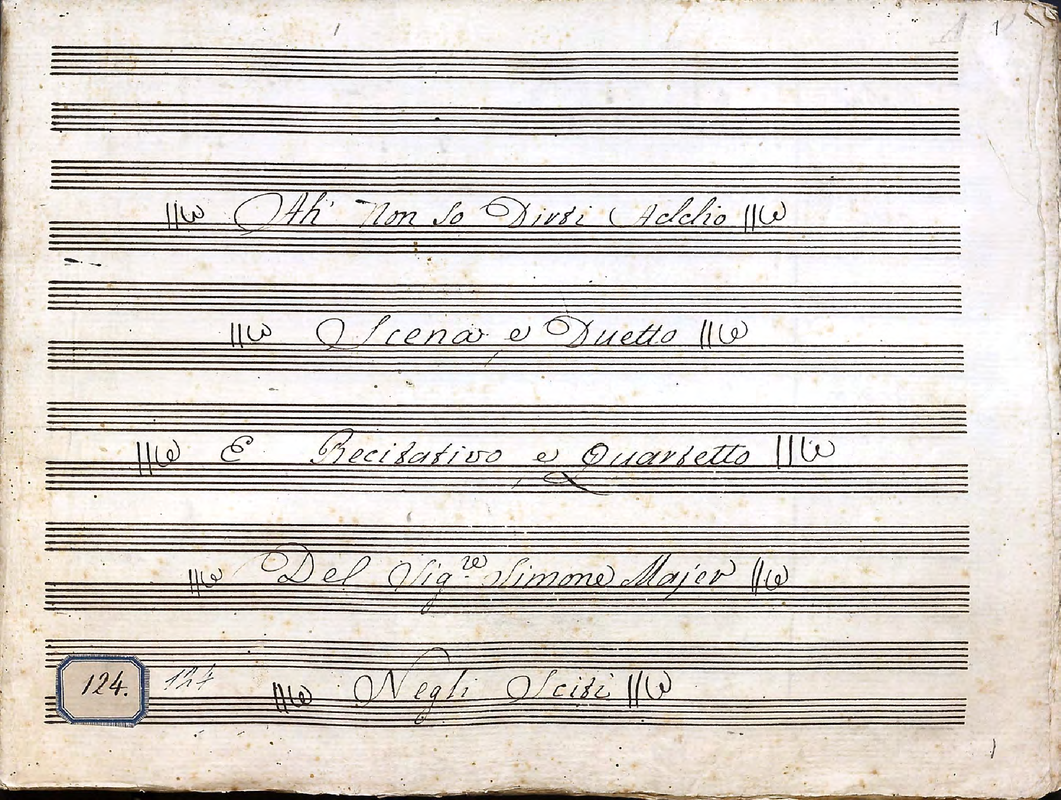 Ah' Non So Dirti Addio
Scena e Duetto
E Recitativo e Quartetto
Del Sig.re Simone Majer
124. 124 Negli Sciti